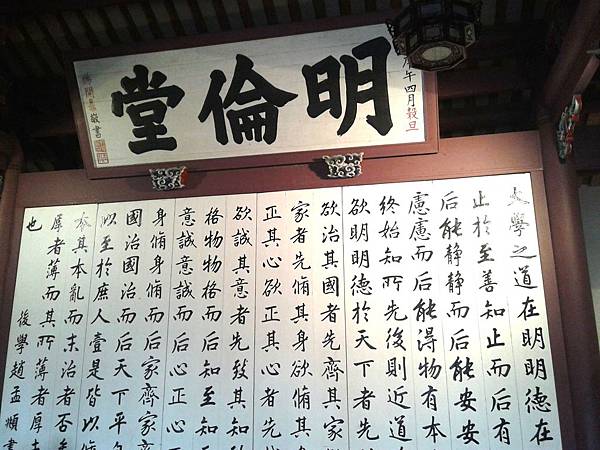 午四月穀旦
明倫堂
敬書
大學之道在明明德在
止於至善知止而后有
后能静静而后能安安
慮慮而后能得物有本
終始知所先後則近道
欲明明德於天下者先
欲治其國者先齊其家
家者先脩其身欲脩其
正其心欲正其心者先
欲誠其意者先致其知
格物物格而后知至知
意誠意誠而后心正心
身脩身脩而后家齊家
國治國治而后天下平自
以至於庶人壹是皆以脩
本其本亂而末治者否矣
厚者薄而其所薄者厚未
也
後學趙孟頫書